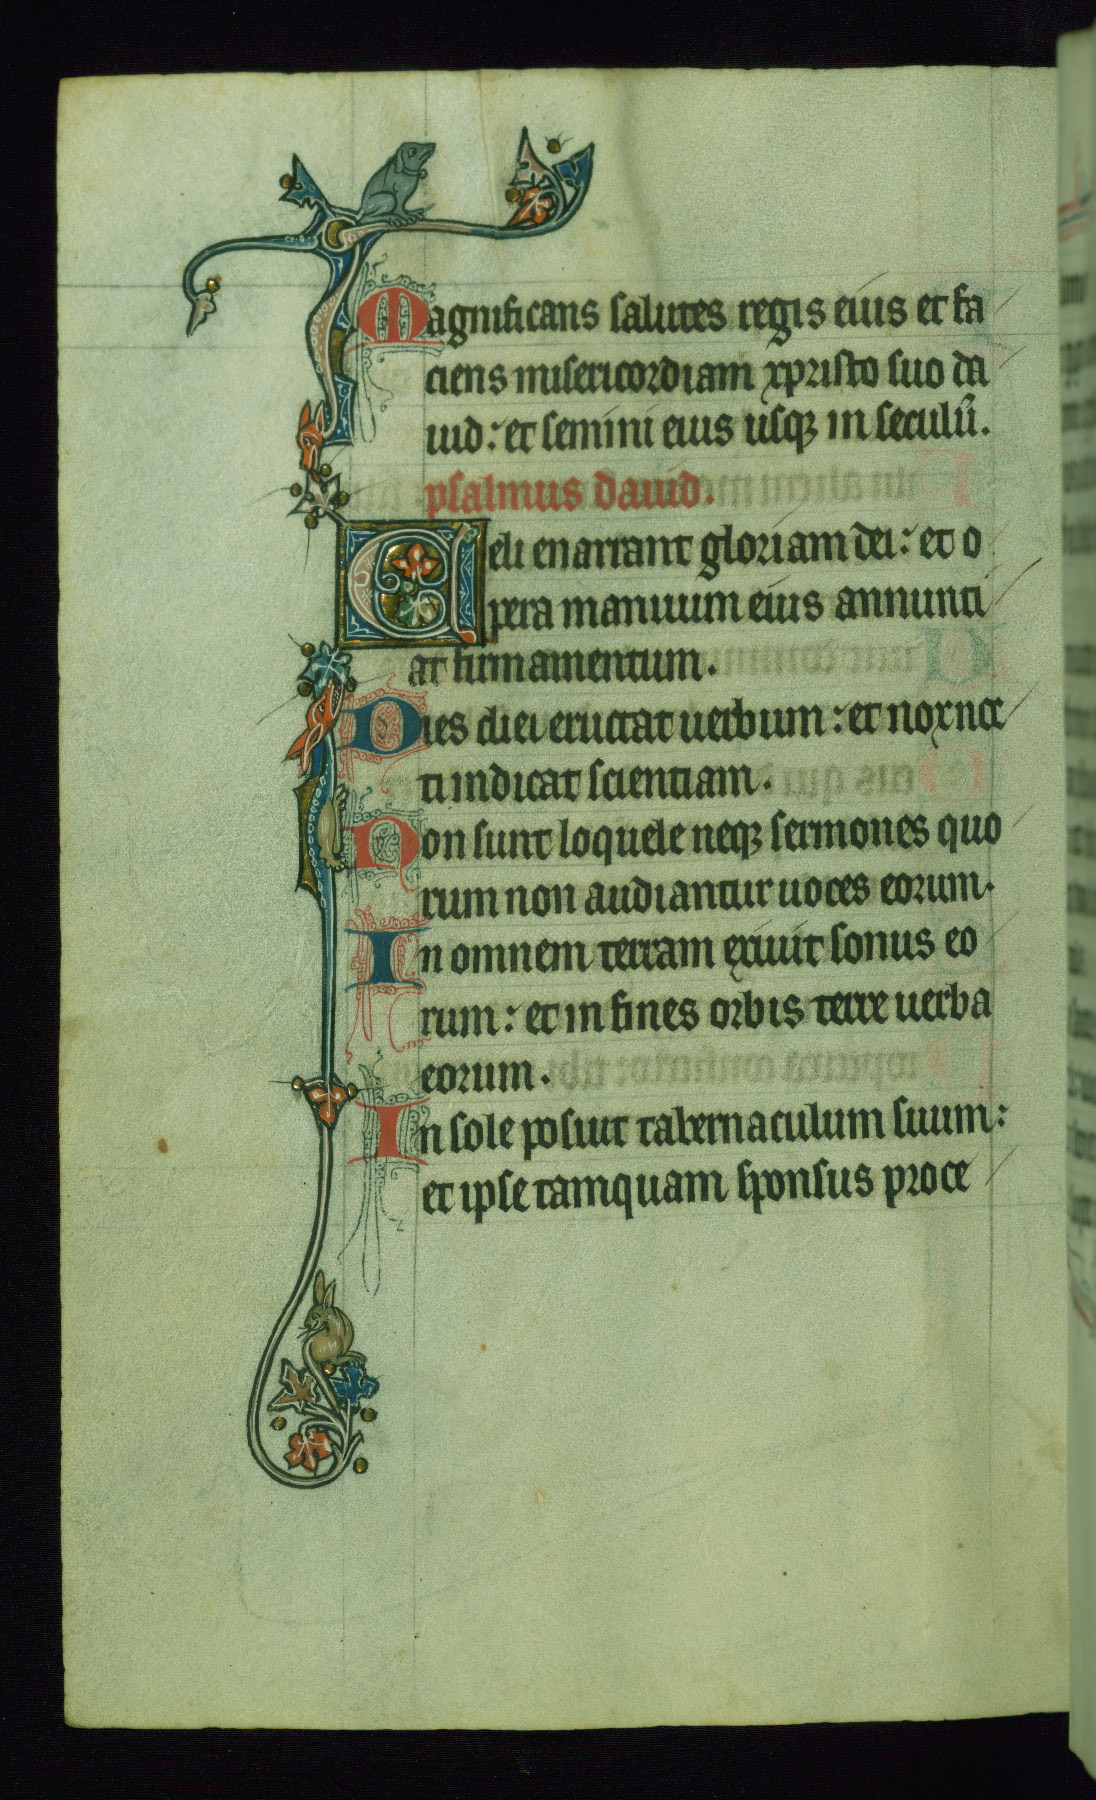 Magnificans salutes regis eius et fa
ciens misericordiam xpristo suo da
uid: et semini eius usqꝫ in seculū.
psalmus dauid.
Celi enarrant gloriam dei: et o
pera manuum eius annunti
at firmamentum.
Dies diei eructat uerbium: et nox noc
ti indicat scientiam.
Non sunt loquele neqꝫ sermones quo
rum non audiantur uoces eorum.
In omnem terram exiuit sonus eo
rum: et in fines orbis terre uerba
eorum.
In sole posuit tabernaculum suum:
et ipse tamquam sponsus proce